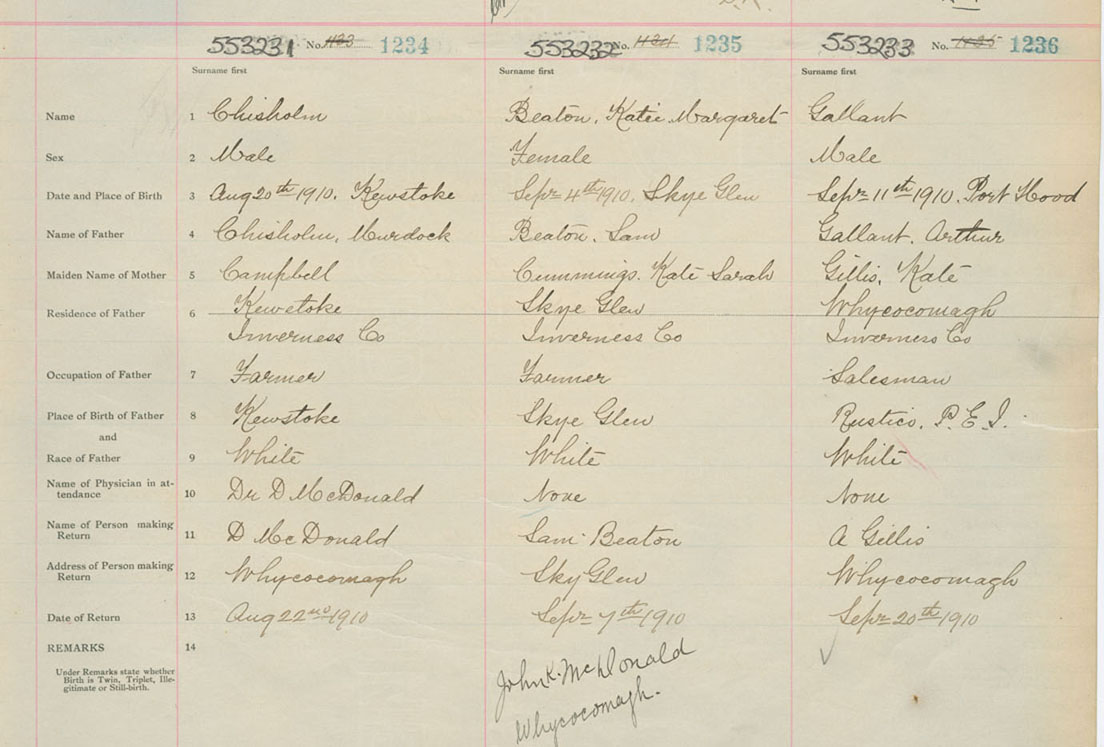 553231 No. 1234 553232 No. 1235 553233 No. 1236
Surname first Surname first Surname first
Name 1 Chisholm Beaton, Katie Margaret Gallant
Sex 2 Male Female Male
Date and Place of Birth 3 Aug 20th 1910. Kewstoke Sepr 4th 1910, Skye Glen Sepr 11th 1910. Port Hood
Name of Father 4 Chisholm, Murdock Beaton, Sam Gallant, Arthur
Maiden Name of Mother 5 Campbell Cummings. Kate Sarah Gillis, Kate
Residence of Father 6 Kewstoke Skye Glen Whycocomagh
Inverness Co Inverness Co Inverness Co
Occupation of Father 7 Farmer Farmer Salesman
Place of Birth of Father 8 Kewstoke Skye Glen Rustico, P. E. I.
and
Race of Father 9 White White White
Name of Physician in at-
tendance 10 Dr D McDonald None None
Name of Person making
Return 11 D McDonald Sam Beaton A Gillis
Address of Person making
Return 12 Whycocomagh Sky Glen Whycocomagh
Date of Return 13 Aug 22nd 1910 Sepr 7th 1910 Sepr 20th 1910
REMARKS 14
Under Remarks state whether
Birth is Twin, Triplet, Ille-
gitimate or Still-birth.
John K. McDonald
Whycocomagh.